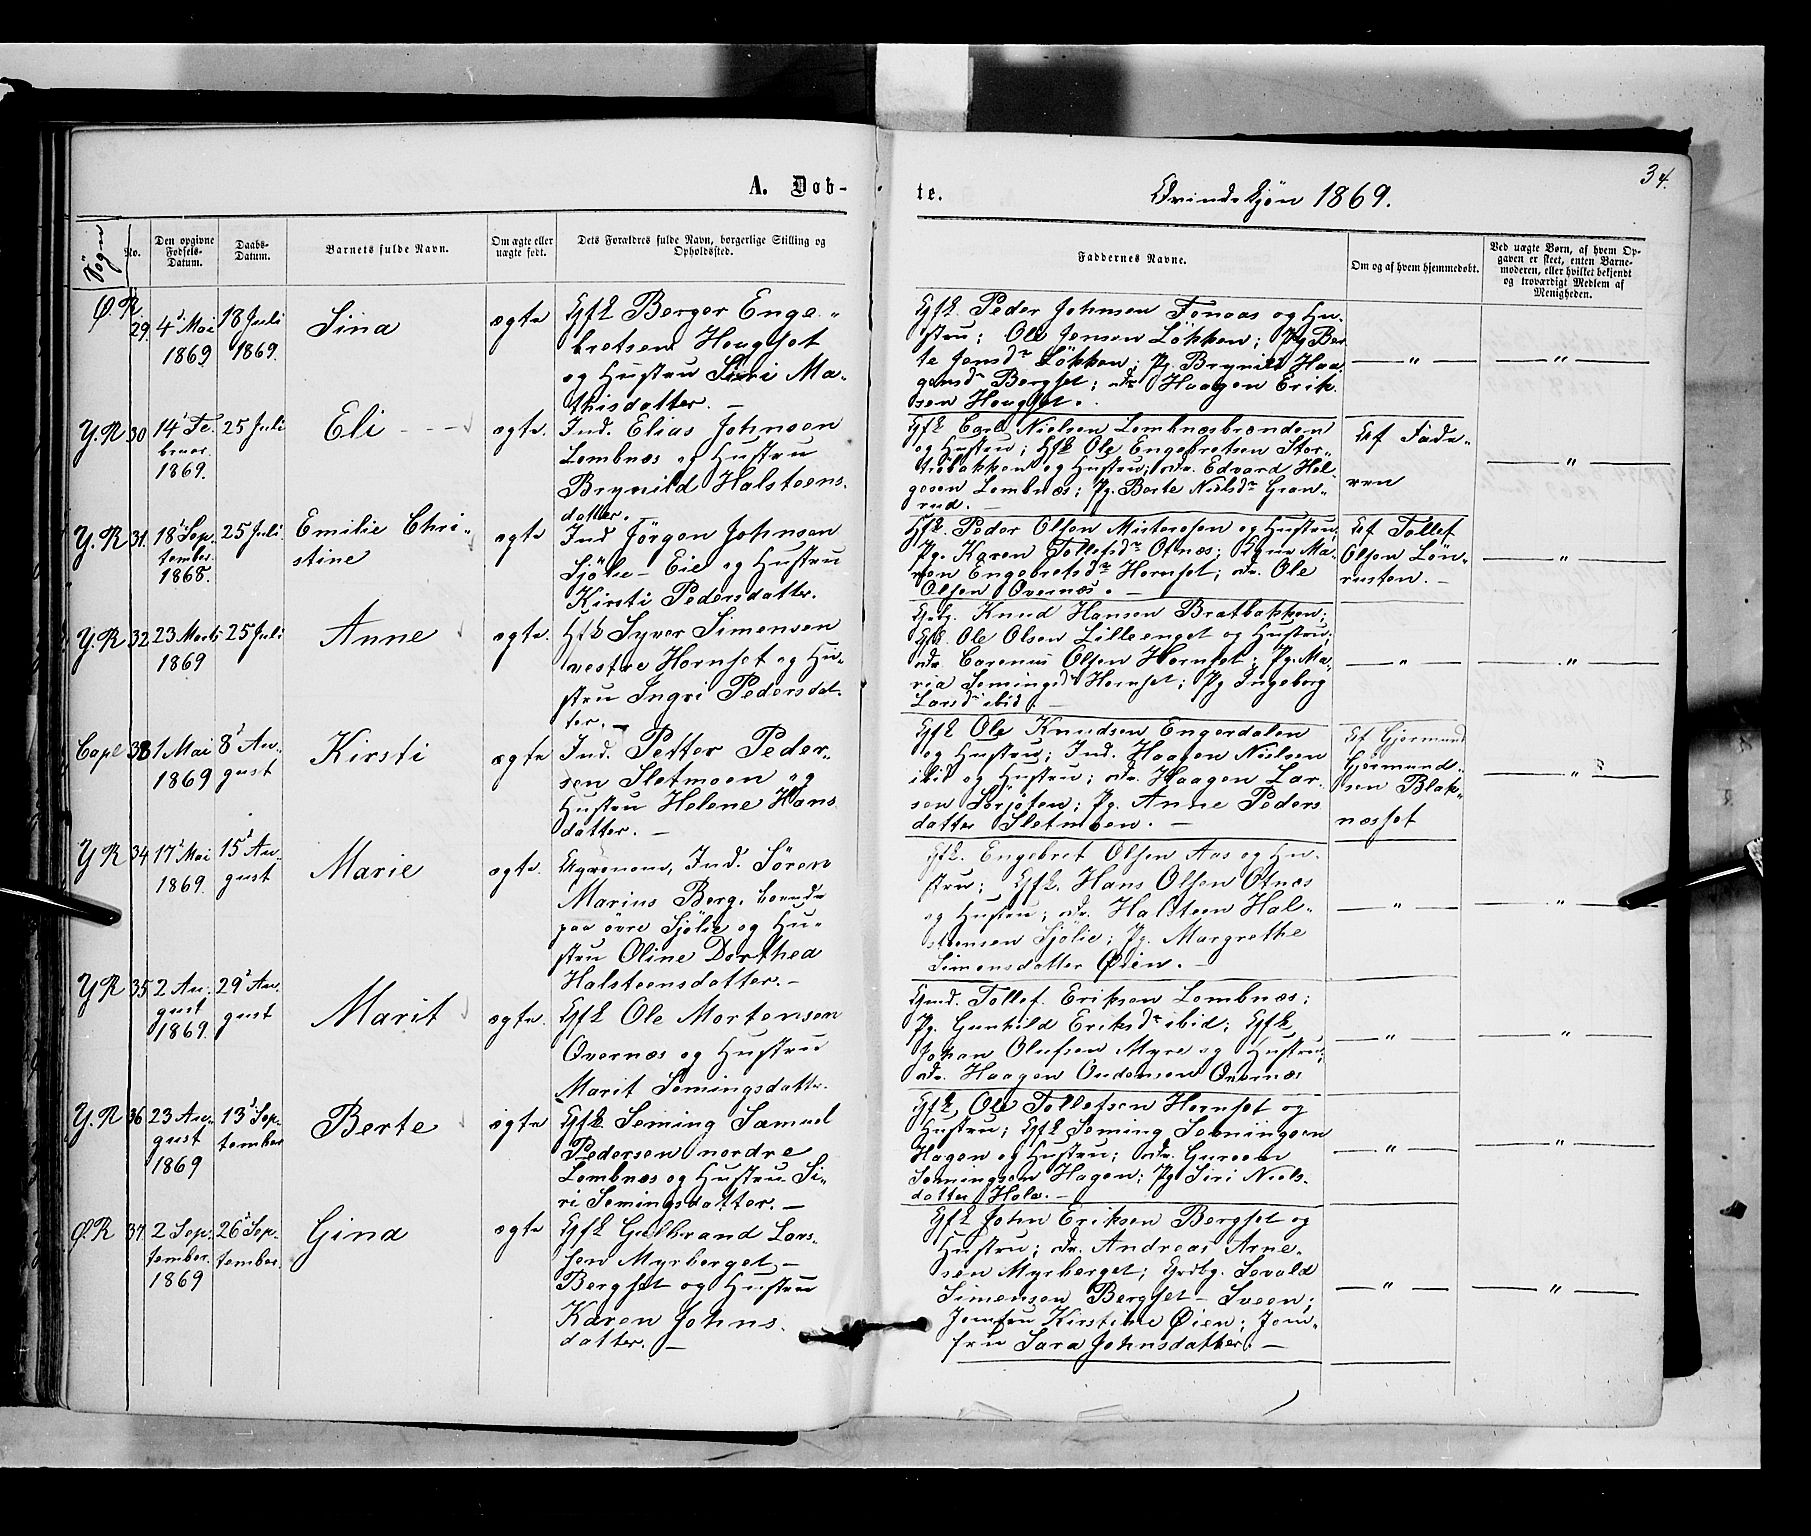 34.
A. Døb-
te.
Qvindekjøn 1869.
Sogn
No.
Den opgivne
Fødsels-
Datum.
Daabs-
Datum.
Barnets fulde Navn.
Om ægte eller
uægte født.
Dets Forældres fulde Navn, borgerlige Stilling og
Opholdssted.
Faddernes Navne.
Om og af hvem hjemmedøbt.
Ved uægte Børn, af hvem Op-
gaven er skeet, enten Barne-
moderen, eller hvilket bekjendt
og troværdigt Medlem af
Menigheden.
Ø.R.
29.
4de Mai
1869
18 Juli
1869.
Sina
ægte
Gfk Berger Enge-
bretsen Haugset
og Hustru Siri Ma-
thisdatter. –
Gfk. Peder Johnsen Fonaas og Hu-
stru; Ole Jensen Løkken; Pg Ber
te Jensdr Løkken; Pg. Brynild Haa
gensdr Bergset; Haagen Erik
sen Haugset.
— " —
— " —
Y.R
30
14de Fe-
bruar
1869.
25 Juli
Eli
ægte.
Ind. Elias Johnsen
Lombnæs og Hustru
Brynild Halsteens-
datter. –
Gfk Carl Nielsen Lombnæsbrenden
og Hustru; Gfk Ole Engebretsen Stor-
og Hustru; Edvard Hel
gesen Lombnæs; Pg. Berte Nielsdr Gron-
rud. –
Af Fade-
ren
— " —
Y.R
31.
18de Sep-
tember
1868.
25 Juli
Emilie Chri-
stine
ægte
Ind Jørgen Johnsen
Sjølie-Eie og Hustru
Kirsti Pedersdatter.
Gfk. Peder Olsen Misterosen og Hustru;
Pg. Karen Tollefsdr Otnæs; Ma-
ren Engebretsdr Hornset; Ole
Olsen Overnæs. –
Af Tollef
Olsen Løn-
rusten. –
— " —
Y.R
32
23 Marts
1869
25 Juli
Anne
ægte.
Gfk Syver Simensen
vestre Hornset og Hu-
stru Ingri Pedersdat-
ter. –
Knud Hansen Bratbakken;
Gfk. Ole Olsen Lilleenget og Hustru;
Carenius Olsen Hornset; Pg. Ma-
ria Semingsdr Hornset; Pg Ingeborg
Larsdr ibid. –
— " —
— " —
Capl
33
1 Mai
1869
8de Au-
gust
Kirsti
ægte
Ind. Petter Peder-
sen Sletmoen og
Hustru Helene Hans
datter. –
Gfk Ole Knudsen Engerdalen
og Hustru; Ind. Haagen Nielsen
ibid og Hustru; Haagen Lar-
sen Sorjoten; Pg. Anne Peders
datter Sletmoen. –
Af Gjermund
Gjermund-
sen Blak-
næsset
— " —
Y R
34
17de Mai
1869.
15de Au-
gust
Marie
ægte.
Agronom, Ind. Søren
Marius Berg, boende
paa øvre Sjølie og Hu-
stru Oline Dorthea
Halsteensdatter. –
Gfk. Engebret Olsen Aas og Hu-
stru; Gfk. Hans Olsen Otnæs
og Hustru; Halsteen Hal-
steensen Sjølie; Pg. Margrethe
Simensdatter Øien. –
— " —
— " —
Y R
35
2 Au-
gust
1869.
29de Au-
gust
Marit
ægte.
Gfk Ole Mortensen
Overnæs og Hustru
Marit Semingsdatter.
Tollef. Eriksen Lombnæs;
Pg. Gunhild Eriksdr ibid; Gfk
Johan Olufsen Myre og Hustru;
Haagen Oudensen Overnæs
— " —
— " —
Y.R
36
23 Au-
gust
1869
13de Sep-
tember
Berte
ægte
Gfk Seming Samuel
Pedersen nordre
Lombnæs og Hustru Si-
ri Semingsdatter. –
Gfk Ole Tollefsen Hornset og
Hustru; Gfk Seming Semingsen
Hagen og Hustru;
Semingsen Hagen; Pg Siri Niels-
datter Hole. –
— " —
— " —
Ø.R
37
2 Sep-
tember
1869
26de Sep-
tember.
Gina
ægte
Gfk Gulbrand Lars-
sen Myrberget –
Bergset og Hustru
Karen Johns-
datter. –
Gfk John Eriksen Bergset og
Hustru; Andreas Arne-
sen Myrberget; Sevald
Simensen Bergset-Sveen;
Jomfru Kirstine Øien; Jom-
fru Sara Johnsdatter. –
— " —
— " —